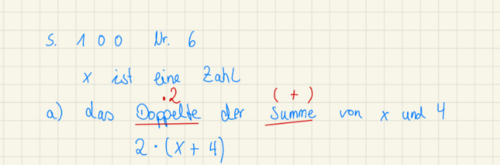 S. 100 Nr. 6
x ist eine Zahl
·2 (+)
a) das Doppelte der Summe von x und 4
2·(x+4)